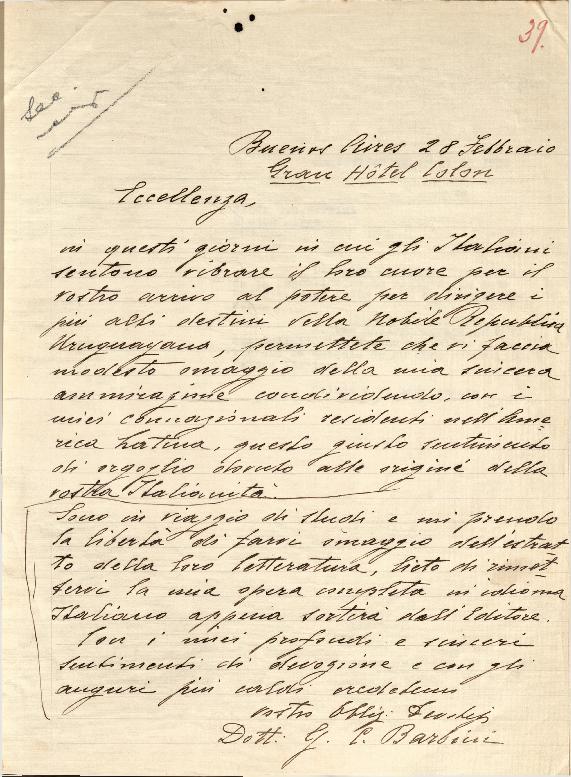 39.
Buenos Aires 28 Febbraio
Gran Hôtel Colon
Eccellenza,
in questi giorni in cui gli Italiani
sentono vibrare il loro cuore per il
vostro arrivo al potere per dirigere i
più alti destini della Nobile Republica
Uruguayana, permettete che vi faccia
modesto omaggio della mia sincera
ammirazione condividendo, con i
miei connazionali residenti nell'Ame
rica Latina, questo giusto sentimento
di orgoglio dovuto alle origini della
vostra Italianità.
Sono in viaggio di studi e mi prendo
la libertà di farvi omaggio dell'estrat
to della loro letteratura, lieto di rimet
tervi la mia opera completa in idioma
Italiano appena sortirà dall'Editore.
Con i miei profondi e sinceri
sentimenti di devozione e con gli
auguri più caldi credetemi
vostro Obblig:
Dott: G. C. Barbini